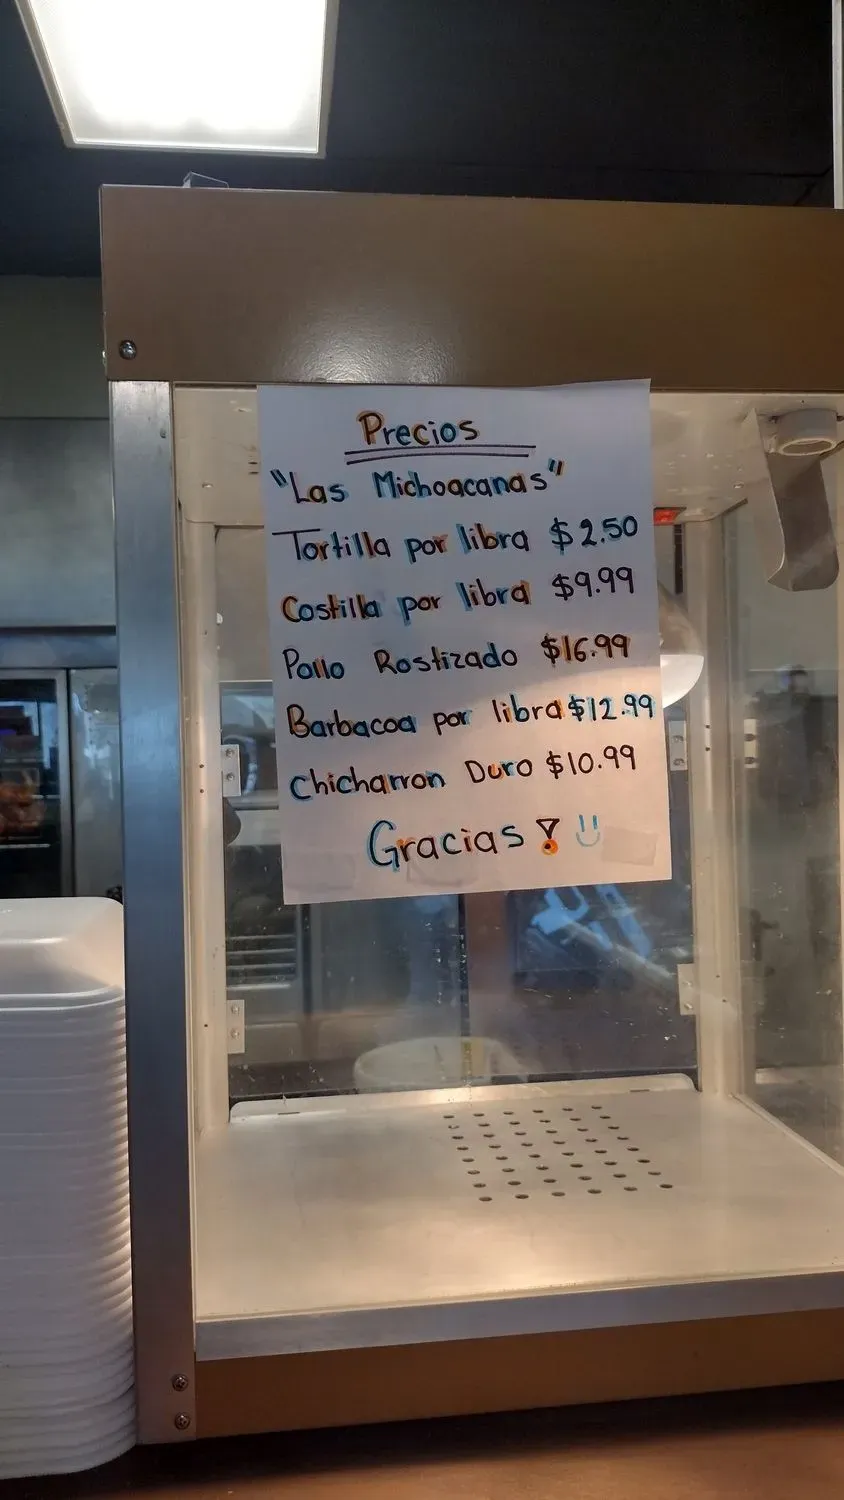 Precios
"Las Michoacanas"
Tortilla por libra $2.50
Costilla por libra $9.99
Pollo Rostizado $16.99
Barbacoa por libra $12.99
Chicharron Duro $10.99
Gracias!